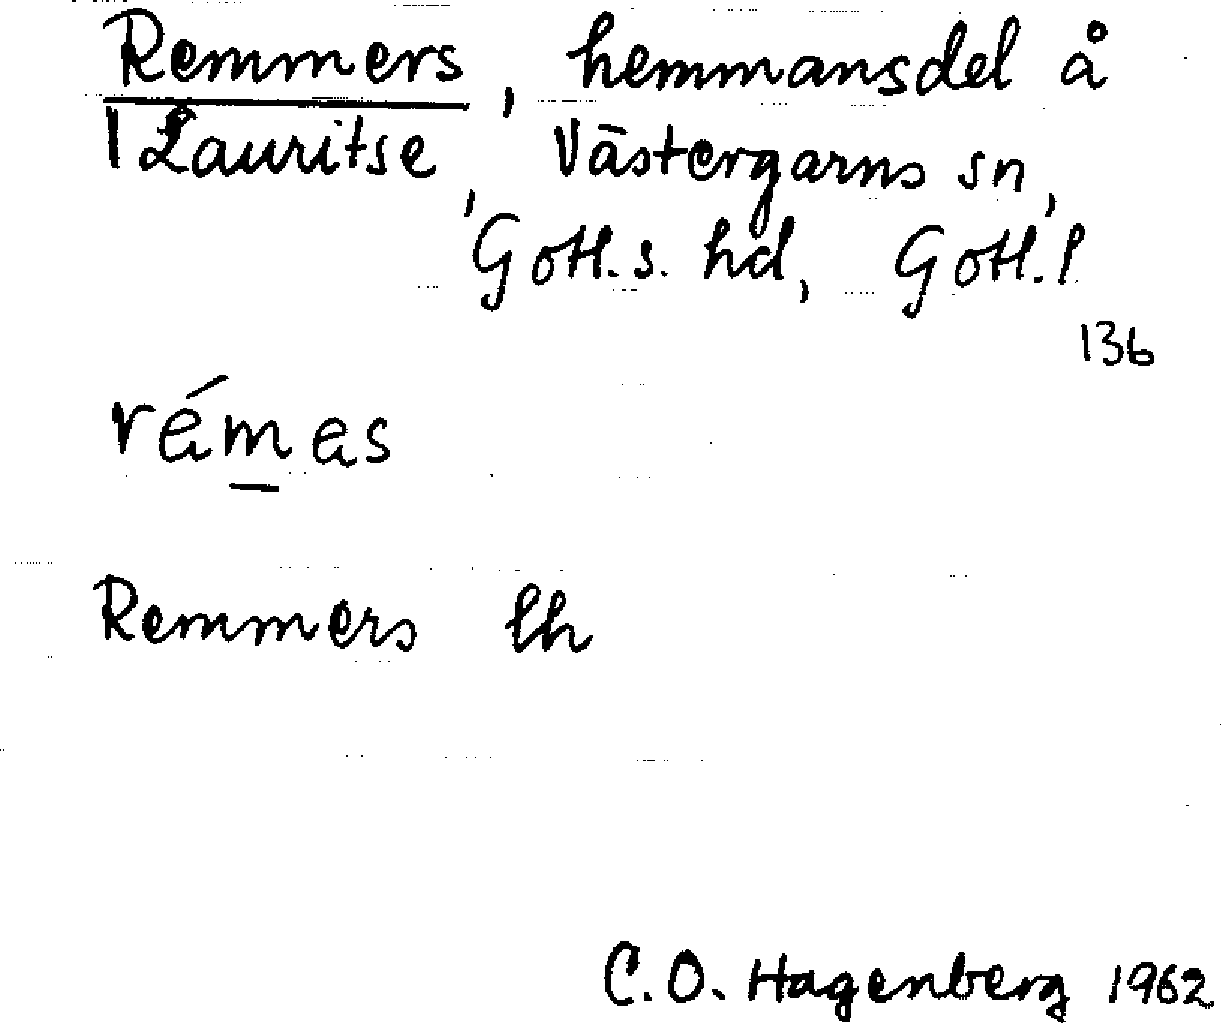 Remmers, hemmansdel å
1 Lauritse, Västergarns sn,
Gotl. s. hd, Gotl. l
136
rémas
Remmers lh
C. O. Hagenberg 1962